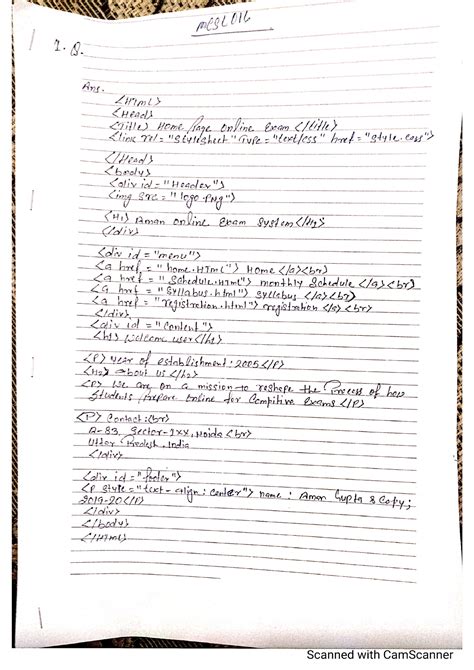 MCSL016
1. Q.
Ans.
<HTML>
<Head>
<Title> Home Page Online Exam </title>
<link rel="stylesheet" Type="text/css" href="style.css">
</Head>
<body>
<div id="Header">
<img src="logo.png">
<H1> Aman Online Exam System</H1>
</div>
<div id="menu">
<a href="home.HTML"> Home </a><br>
<a href="Schedule.HTML"> monthly Schedule </a><br>
<a href="Syllabus.html"> syllebus </a><br>
<a href="registretion.html"> registration </a><br>
</div>
<div id="Content">
<h1> Welcome user</h1>
<P> Year of establishment: 2005</P>
<H2> About us </h2>
<P> We are on a mission to reshape the Process of how
Students Prepare online for Compitive Exams </P>
<P> Contact:<br>
Sector-1XX, Noida <br>
Uttar Pradesh, India
</div>
<div id="footer">
<P style="text-align: center"> name: Aman Gupta & Copy;
2019-20</P>
</div>
</body>
</HTML>
Scanned with CamScanner